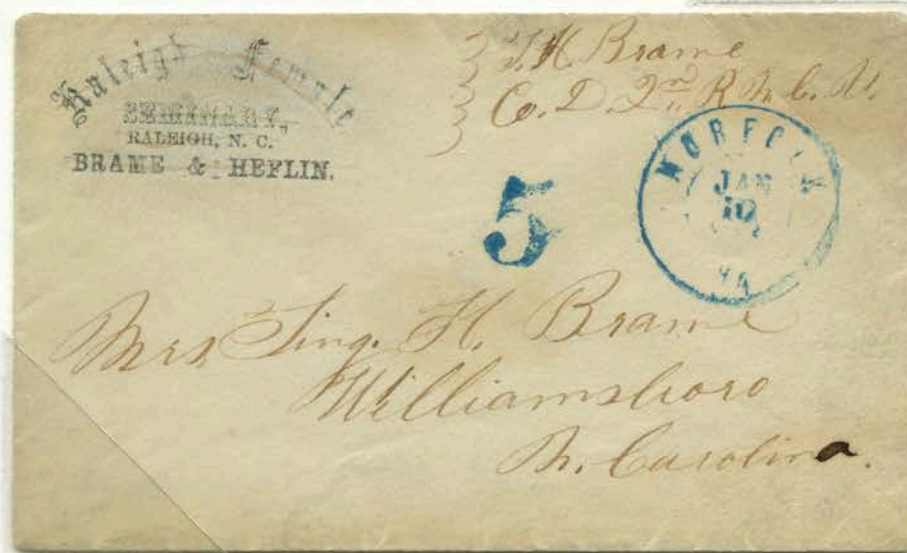 Raleigh Female
SEMINARY,
RALEIGH, N. C.
BRAME & HEFLIN.
T. H Brame
Co. D. 2nd R N. C. V.
5
NORFOLK
JAN
10
VA
Mrs H. Brame
Williamsboro
N. Carolina.